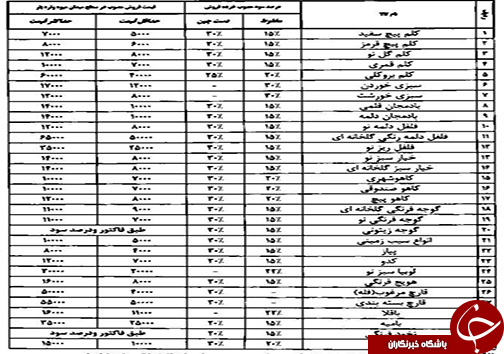 درصد سود مصوب خرده فروش
مخلوط دست چین حداقل قیمت حداکثر قیمت
۱ کلم پیچ سفید ۱۵٪ ۳۰٪ ۵۰۰۰ ۷۰۰۰
۲ کلم پیچ قرمز ۱۵٪ ۳۰٪ ۶۰۰۰ ۸۰۰۰
۳ کلم گل نو ۱۵٪ ۳۰٪ ۸۰۰۰ ۱۲۰۰۰
۴ کلم قمری ۱۵٪ ۳۰٪ ۷۰۰۰ ۱۰۰۰۰
۵ کلم بروکلی ۲۰٪ ۲۵٪ ۴۰۰۰۰ ۶۰۰۰۰
۶ سبزی خوردن ۳۰٪ - ۱۲۰۰۰ ۱۷۰۰۰
۷ سبزی خورشت ۳۰٪ - ۸۰۰۰ ۱۲۰۰۰
۸ بادمجان قلمی ۱۵٪ ۳۰٪ ۱۰۰۰۰ ۱۴۰۰۰
۹ بادمجان دلمه ۱۵٪ ۳۰٪ ۱۰۰۰۰ ۱۴۰۰۰
۱۰ فلفل دلمه نو ۱۵٪ ۳۰٪ ۸۰۰۰ ۱۲۰۰۰
۱۱ فلفل دلمه رنگی گلخانه ای ۱۵٪ ۳۰٪ ۵۰۰۰۰ ۶۵۰۰۰
۱۲ فلفل ریز نو ۱۵٪ ۳۰٪ ۲۵۰۰۰ ۳۵۰۰۰
۱۳ خیار سبز نو ۱۵٪ ۳۰٪ ۸۰۰۰ ۱۴۰۰۰
۱۴ خیار سبز گلخانه ای ۱۵٪ ۳۰٪ ۸۰۰۰ ۱۴۰۰۰
۱۵ کاهوشهری ۲۰٪ ۳۰٪ ۷۰۰۰ ۱۰۰۰۰
۱۶ کاهو صندوقی ۲۰٪ ۳۰٪ ۷۰۰۰ ۱۰۰۰۰
۱۷ کاهو پیچ ۲۰٪ ۳۰٪ ۸۰۰۰ ۱۲۰۰۰
۱۸ گوجه فرنگی گلخانه ای ۱۵٪ ۳۰٪ ۹۰۰۰ ۱۱۰۰۰
۱۹ گوجه فرنگی نو ۱۵٪ ۳۰٪ ۷۰۰۰ ۱۱۰۰۰
۲۰ گوجه زیتونی ۱۵٪ ۳۰٪ طبق فاکتور ودرصد سود
۲۱ انواع سیب زمینی ۱۵٪ ۳۰٪ ۵۰۰۰ ۱۰۰۰۰
۲۲ پیاز ۱۵٪ ۳۰٪ ۴۰۰۰ ۸۰۰۰
۲۳ کدو ۱۵٪ ۳۰٪ ۷۰۰۰ ۱۲۰۰۰
۲۴ لوبیا سبز نو ۲۲٪ - ۲۰۰۰۰ ۳۰۰۰۰
۲۵ هویج فرنگی ۱۵٪ ۳۰٪ ۸۰۰۰ ۱۶۰۰۰
۲۶ قارچ مرغوب(فله) ۳۰٪ - ۴۰۰۰۰ ۵۰۰۰۰
قارچ بسته بندی ۳۰٪ - ۵۵۰۰۰
باقلا ۲۲٪ - ۱۱۰۰۰ ۱۶۰۰۰
بامیه ۱۵٪ ۳۰٪ ۲۵۰۰۰ ۳۵۰۰۰
نخود فرنگی ۱۵٪ ۳۰٪ طبق فاکتور ودرصد سود
۲۰٪ ۳۰٪ ۱۰۰۰۰ ۱۵۰۰۰
باشگاه خبرنگاران